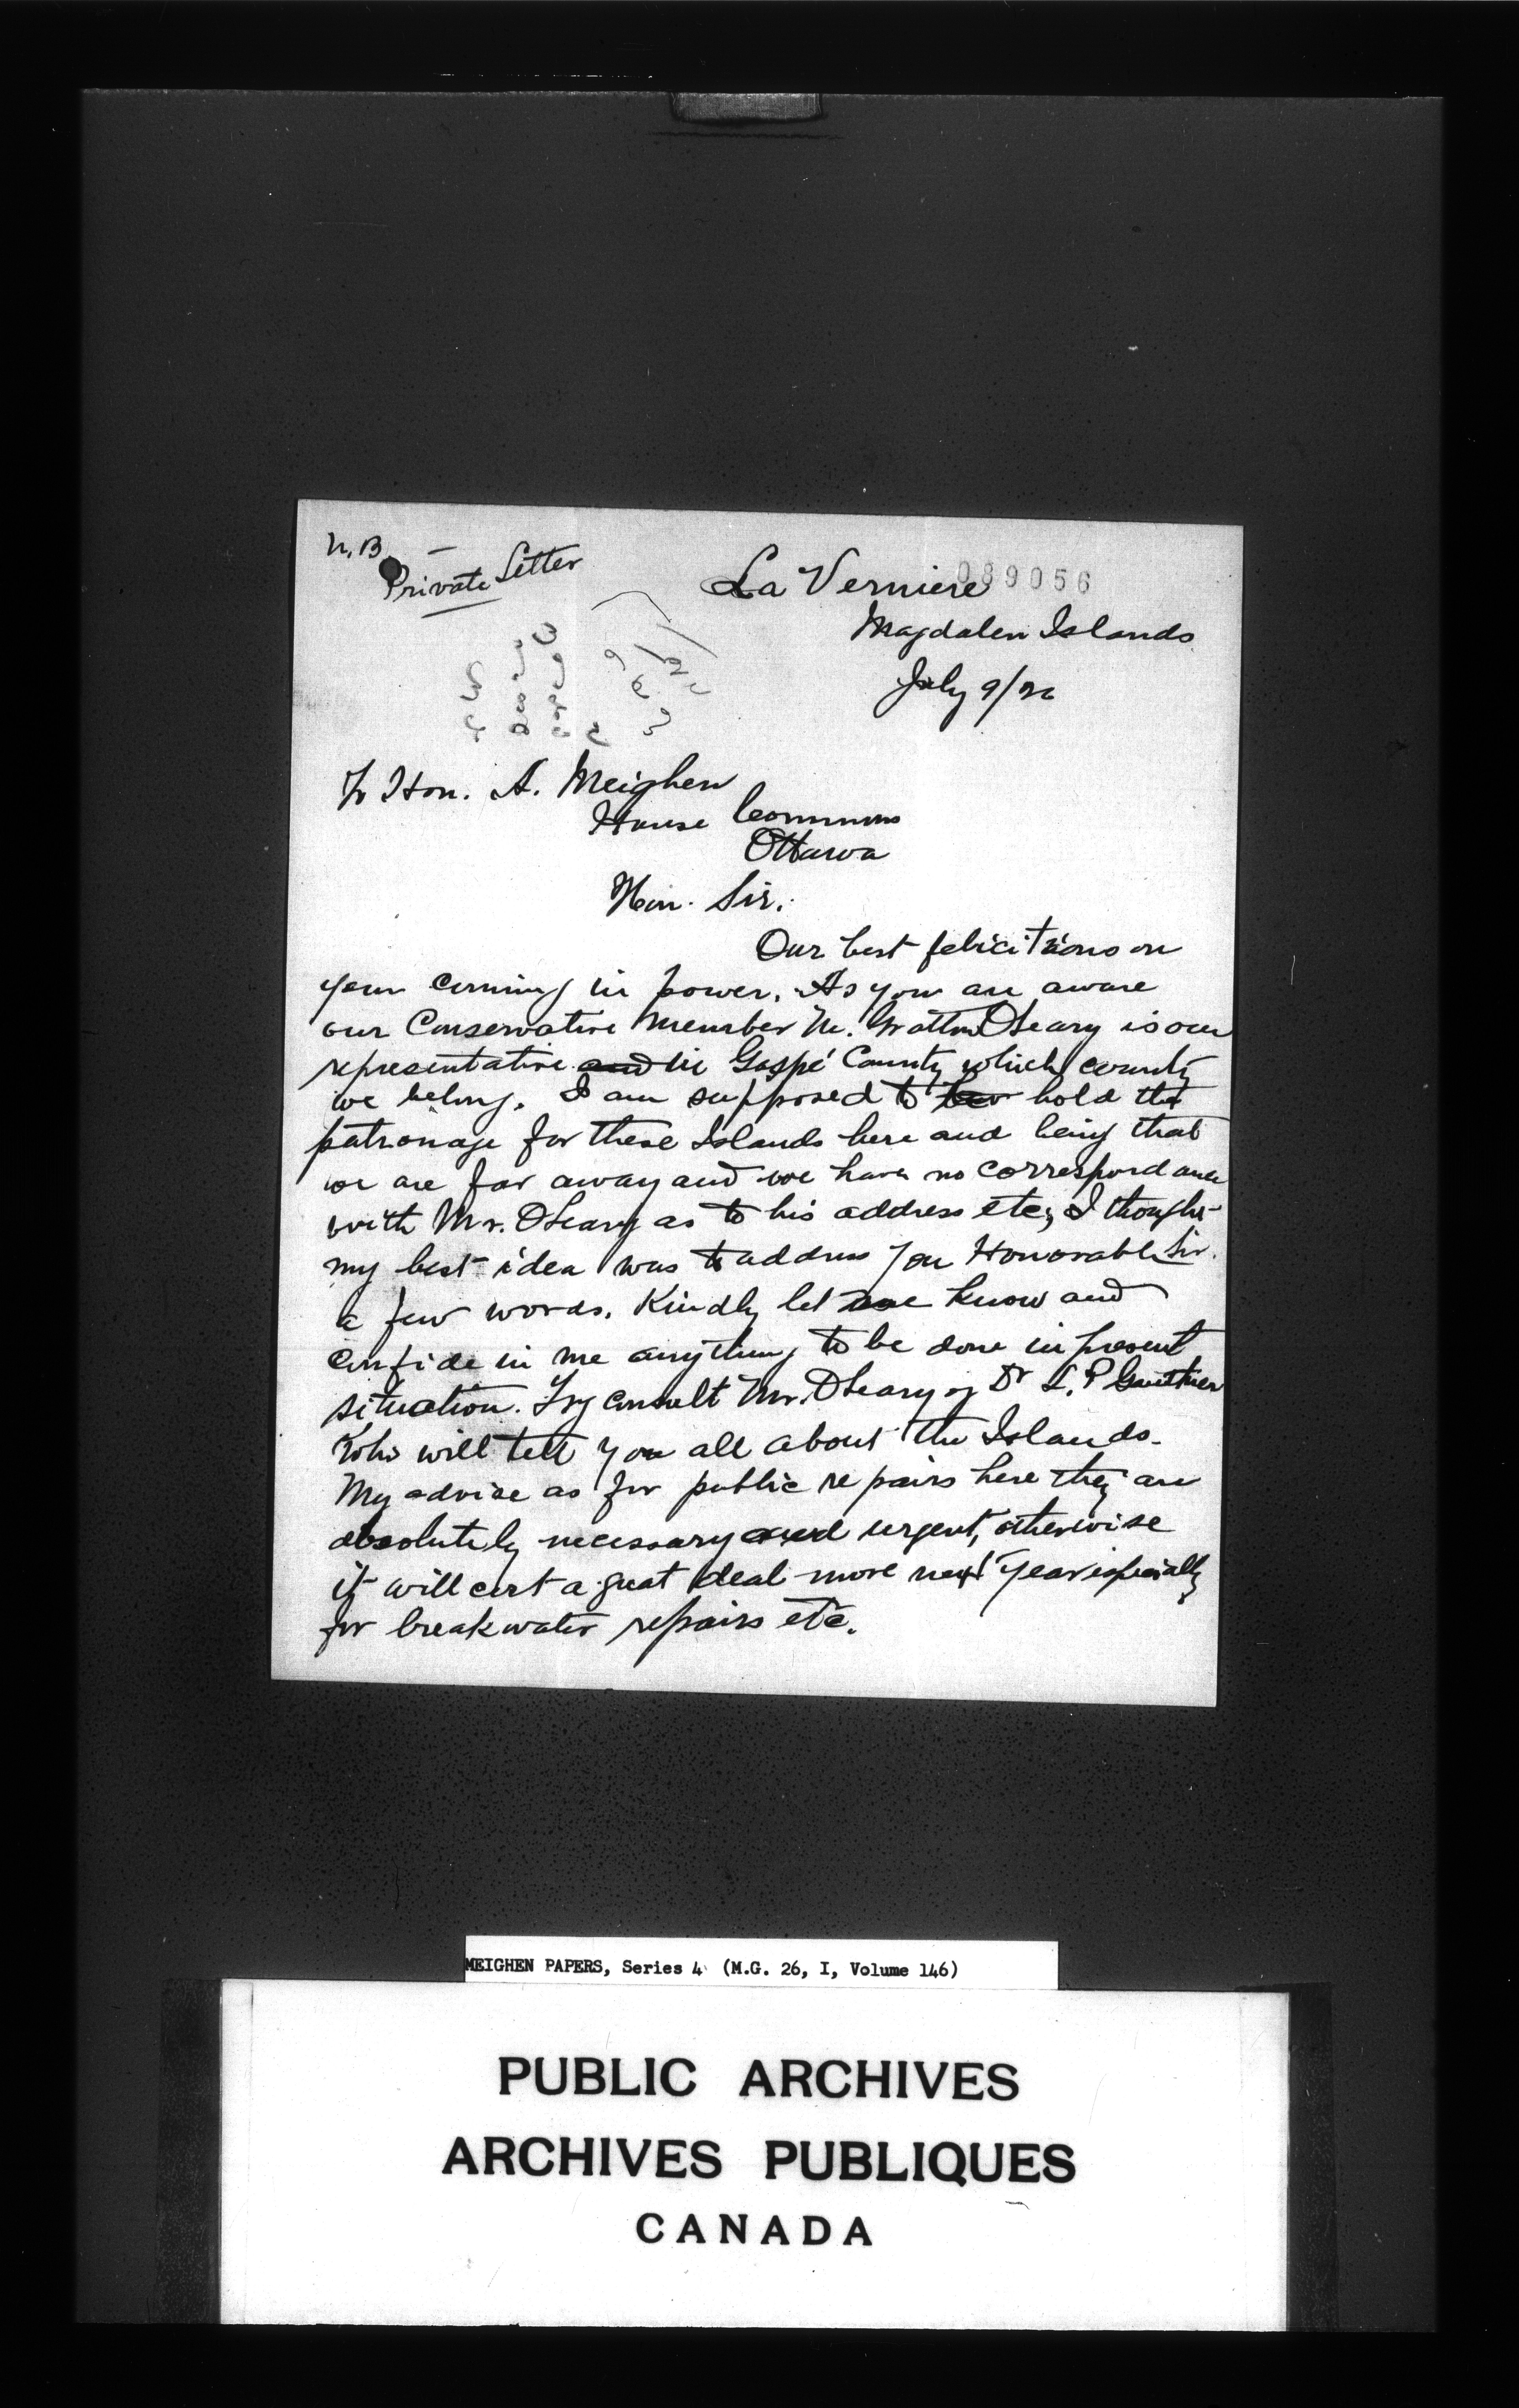 N.B. –
Private Letter
089056
La Verniere
Magdalen Islands
July 9/26
To Hon. A. Meighen
House Commons
Ottawa
Hon. Sir.
Our best felicitations on
your coming in power. As you are aware
our Conservative member M. Grattan O'Leary is our
representative and in Gaspé County which county
we belong. I am supposed to hold the
patronage for these Islands here and being that
we are far away and we have no correspondance
with Mr. O'Leary as to his address etc, I thought
my best idea was to address you Honorable Sir.
a few words. Kindly let me know and
confide in me anything to be done in present
situation. Try consult Mr. O'Leary or Dr L. P Gauthier
who will tell you all about the Islands.
My advise as for public repairs here they are
absolutely necessary and urgent, otherwise
it will cost a great deal more next year especially
for breakwater repairs etc.
MEIGHEN PAPERS, Series 4 (M.G. 26, I, Volume 146)
PUBLIC ARCHIVES
ARCHIVES PUBLIQUES
CANADA